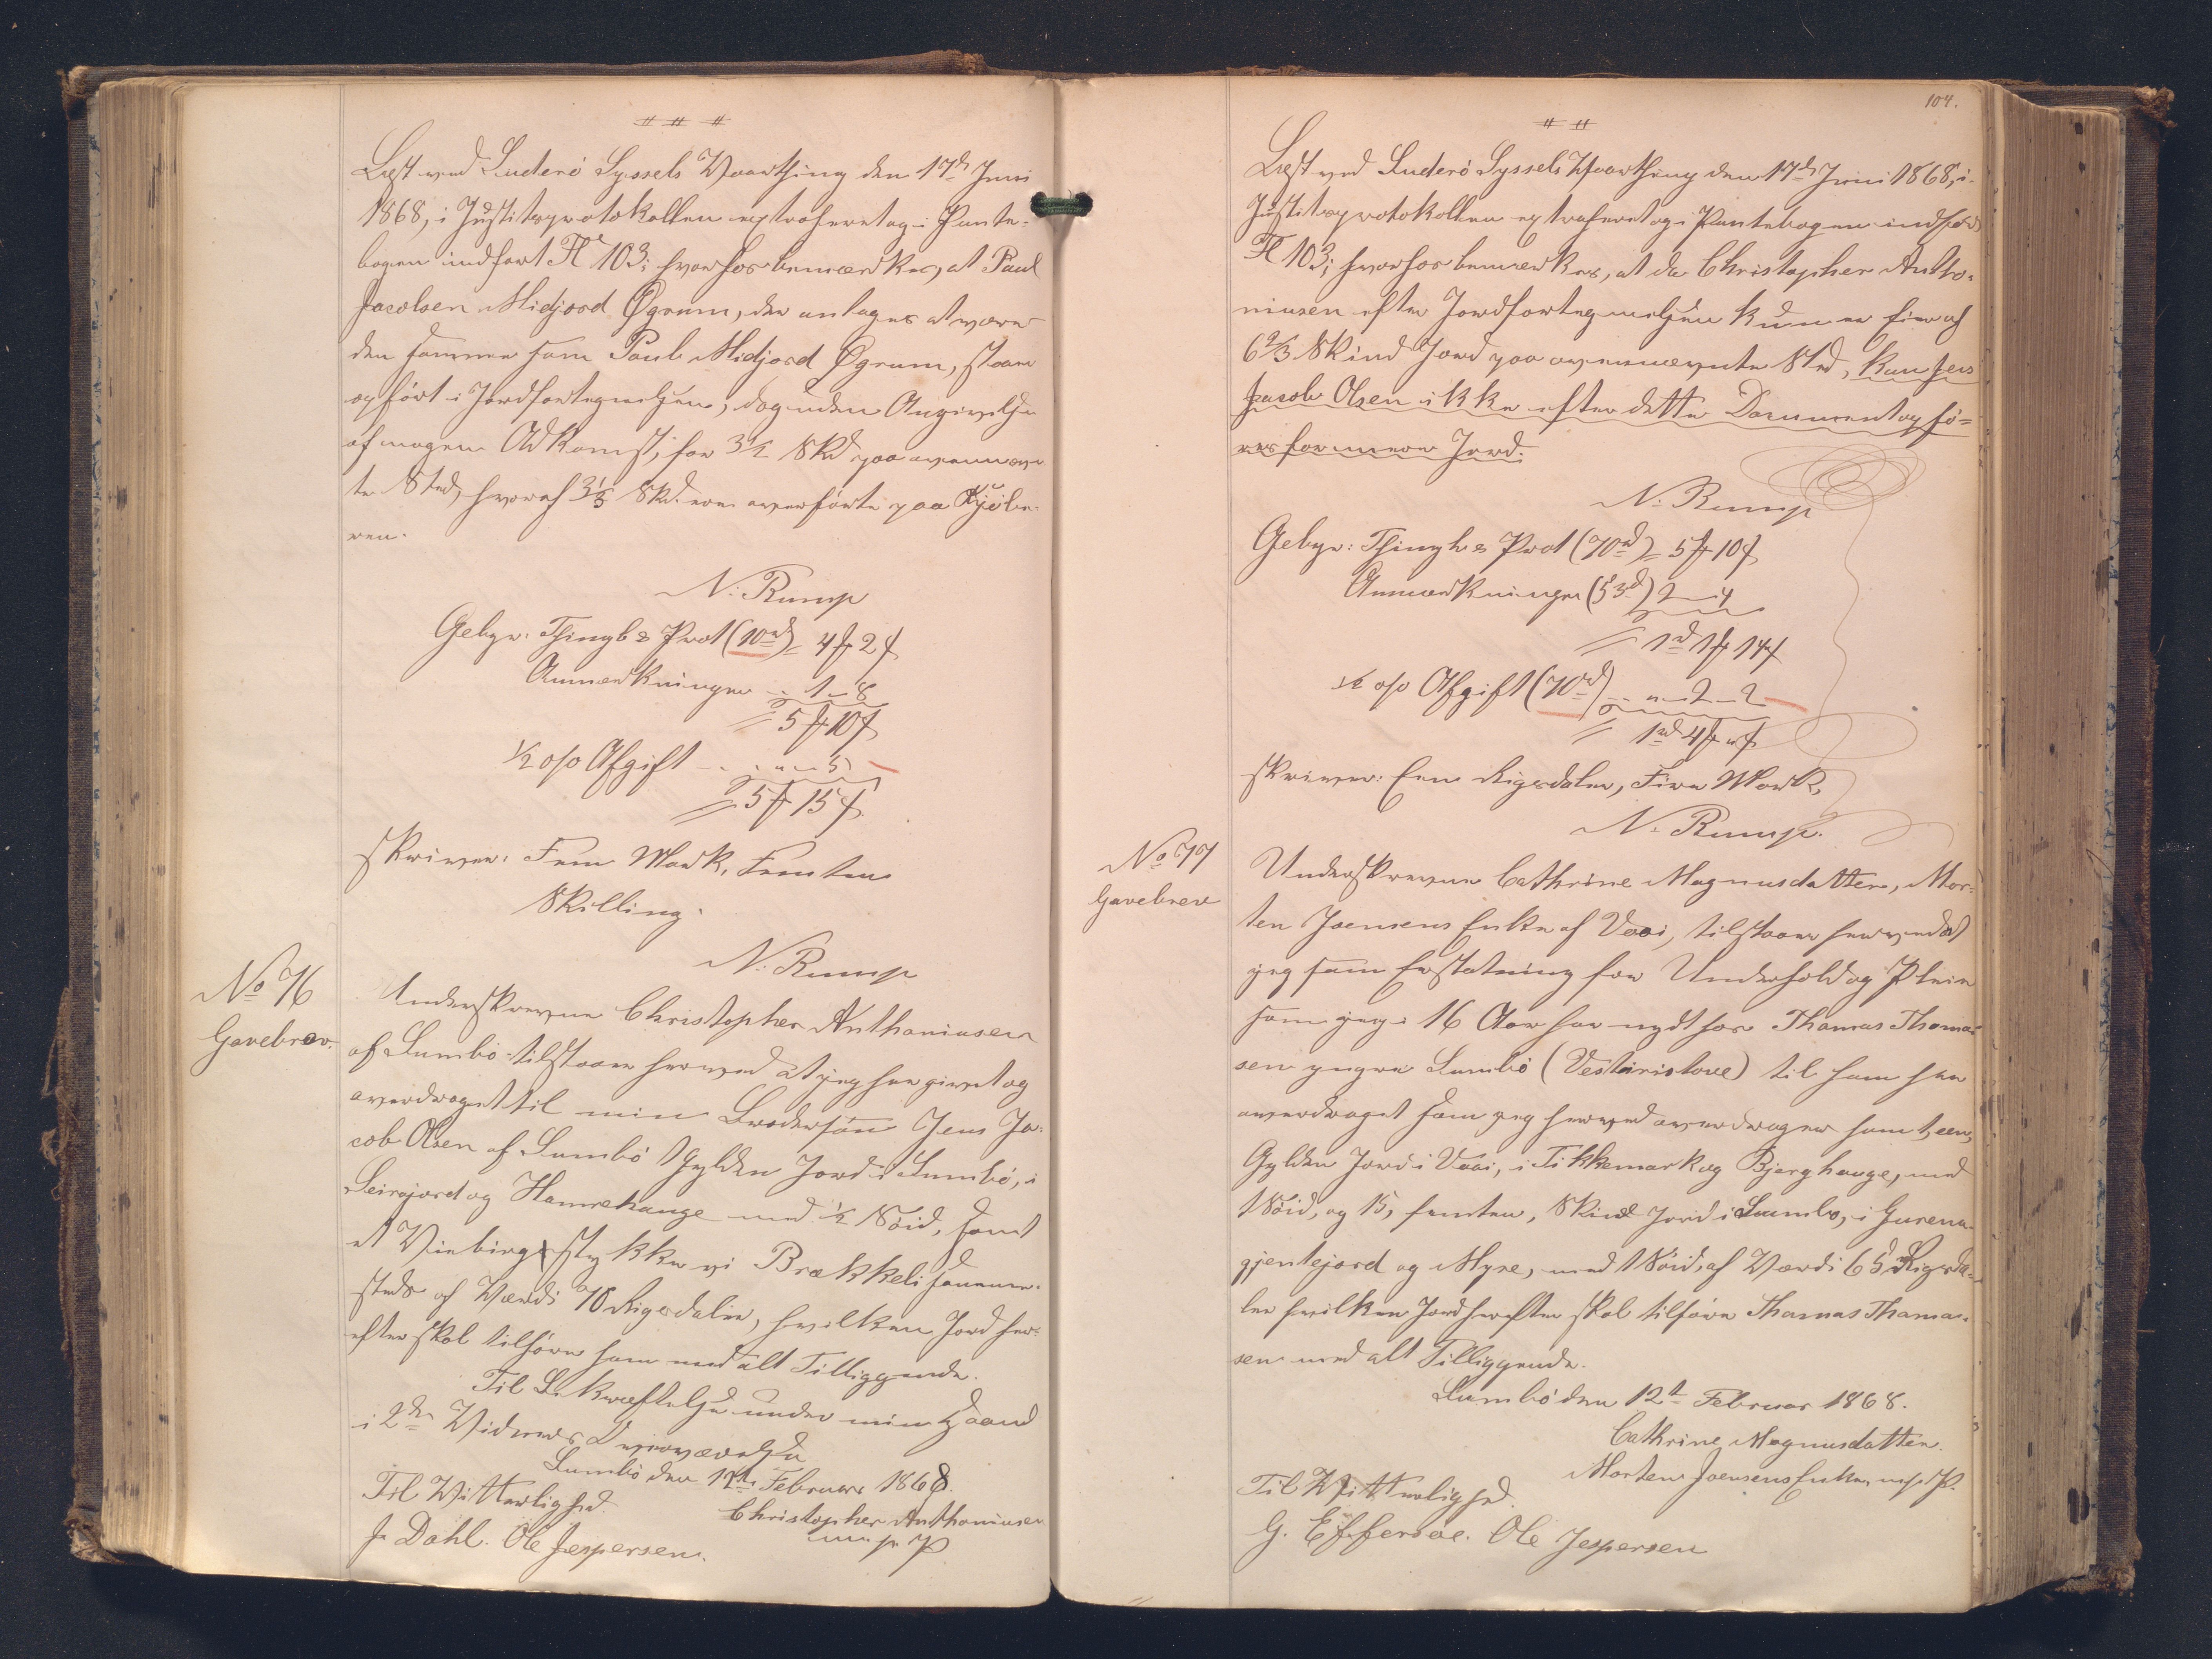 Læst ved Suderö Syssels Vaarthing den 17d Juni
1868, i Justitsprotokollen extraheret og i Pante-
bogen indført Fl 103; hvorhos bemærkes, at Paul
Jacobsen Midjord Øgrum, der antages at være
den samme som Paul Midjord Øgrum, staar
opført i Jordfortegnelsen, dog uden Angivelse
af nogen Adkomst, for 3½ Skd paa ovennævn
te Sted, hvoraf 3⅓ Skd. ere overførte paa Kjöbe-
ren.
N. Rump
Gebyr: Thingl & Prot (10rd) = 4 ℳ 2 ß
Anmærkninger - 1 - 8
= 5 ℳ 10 ß
½ o/o Afgift - - „ - 5
= 5 ℳ 15 ß
skriver: Fem Mark, Femten
Skilling.
N. Rump
No 76
Gavebrev.
Underskrevne Christopher Anthoniusen
af Sumbö tilstaaer herved at jeg har givet og
overdraget til min Brodersön Jens Ja-
cob Olsen af Sumbö 1 Gylden Jord i Sumbö, i
Leirajord og Hamrehauge med ½ Nöid, samt
et Vinbirg stykke vi Brækkeli sammen-
steds af Værdi 70 Rigsdaler, hvilken Jord her-
efter skal tilhöre ham med alt Tilliggende.
Til Bekræftelse under min Haand
i 2de Vidners Overværelse
Sumbö den 12te Februar 1868.
Til Vitterlighed Christopher Anthoniusen
J. Dahl. Ole Jespersen. m. p. P
104.
Læst ved Suderö Syssels Vaarthing den 17d Juni 1868, i
Justitsprotokollen extraheret og i Pantebogen indført
Fl 103; hvorhos bemærkes, at da Christopher Antho-
niusen efter Jordfortegnelsen kun er Eier af
6⅔ Skind Jord paa ovennævnte Sted, kan Jens
Jacob Olsen ikke efter dette Document opfö-
res for mere Jord.
N. Rump
Gebyr: Thingl & Prot (70rd) = 5 ℳ 10 ß
Anmærkninger (§ 3d) 2 - 4
= 1rd 1 ℳ 14 ß
½ o/o Afgift (70rd) - „ - 2 - 2
= 1rd 4 ℳ „ ß
skriver: Een Rigsdaler, Fire Mark,
N. Rump.
No 77
Gavebrev
Underskrevne Cathrine Magnusdatter, Mor-
ten Joensens Enke af Vaai, tilstaaer herved at
jeg som Erstatning for Underhold og Pleie
som jeg i 16 Aar har nydt hos Thomas Thoma
sen yngre Sumbö (Vestaristove) til ham har
overdraget som jeg herved overdrager ham 1, een,
Gylden Jord i Vaai, i Tikkemark og Bjerghauge, med
1 Nöid, og 15, femten, Skind Jord i Sumbo, i Gurena-
gjentejord og Myre, med 1 Nöid, af Værdi 65 Rigsda-
ler hvilken Jord herefter skal tilhöre Thomas Thoma-
sen med alt Tilliggende.
Sumbö den 12t Februar 1868.
Cathrine Magnusdatter.
Morten Joensens Enke. m. p. P.
Til Vitterlighed.
G. Effersöe. Ole Jespersen